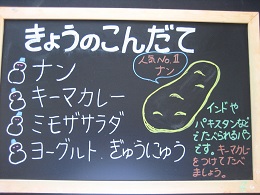 きょうのこんだて
ナン
キーマカレー
ミモザサラダ
ヨーグルト.ぎゅうにゅう
人気No.11
ナン
インドや
パキスタンなど
でたべられるパン
です。キーマカレー
をつけてたべ
ましょう。